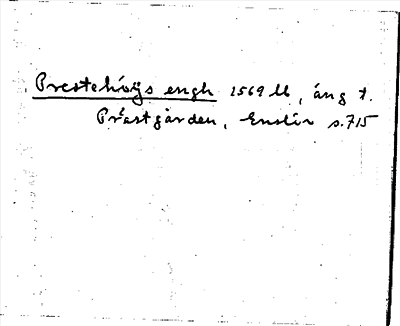 Prestehöÿs engh 1569 ll, äng t.
Prästgården, Enslöv s.715